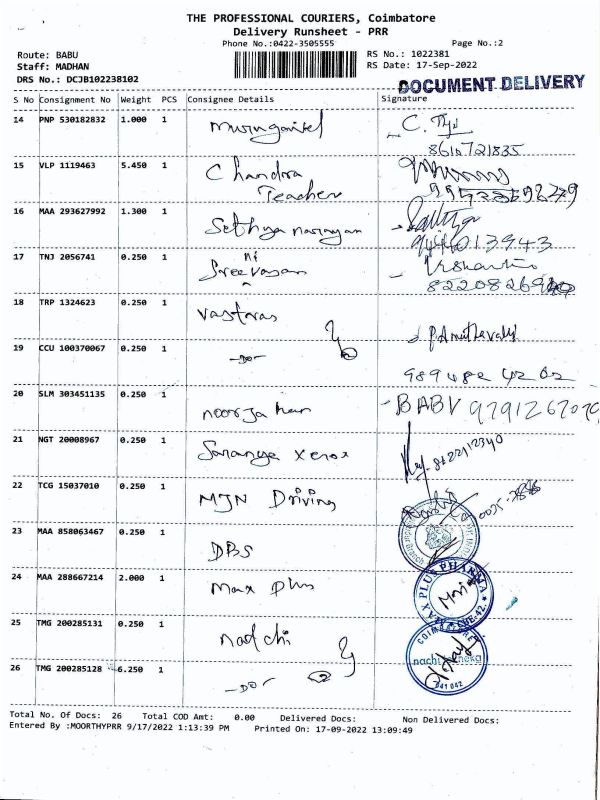 THE PROFESSIONAL COURIERS, Coimbatore
Delivery Runsheet - PRR
Phone No.:0422-3505555 Page No.:2
Route: BABU RS No.: 1022381
Staff: MADHAN RS Date: 17-Sep-2022
DRS No.: DCJB102238102
DOCUMENT DELIVERY
S No Consignment No Weight PCS Consignee Details Signature
14 PNP 530182832 1.000 1
8610721835
15 VLP 1119463 5.450 1 Chandra
Teacher
16 MAA 293627992 1.300 1 Sethya narayan
9444013943
17 TNJ 2056741 0.250 1 Sreenivasan
18 TRP 1324623 0.250 1 Vastras
19 CCU 100370067 0.250 1 -DO-
989482 42 02
20 SLM 303451135 0.250 1 noorjahan BABU
21 NGT 20008967 0.250 1 Saranya Xerox
22 TCG 15037010 0.250 1 MJN Driving
23 MAA 858063467 0.250 1 DBS
24 MAA 288667214 2.000 1 Max Plus
X PLUS PHARMA
25 TMG 200285131 0.250 1 nadchi
COIMBATORE
26 TMG 200285128 6.250 1 -DO-
641 042
Total No. Of Docs: 26 Total COD Amt: 0.00 Delivered Docs: Non Delivered Docs:
Entered By :MOORTHYPRR 9/17/2022 1:13:39 PM Printed On: 17-09-2022 13:09:49